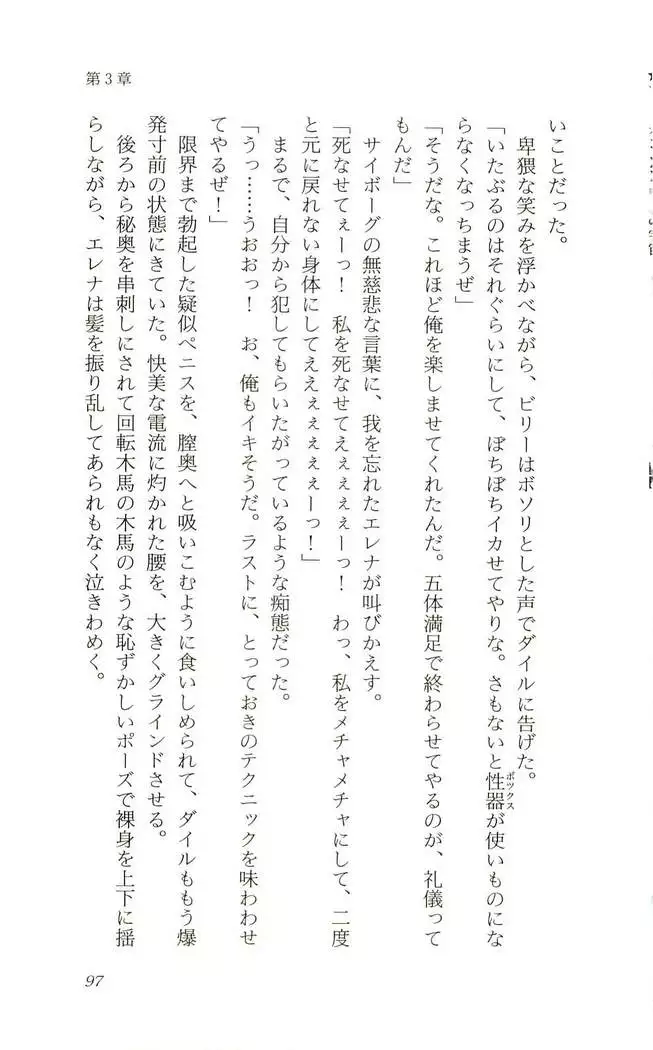 いことだった。
卑猥な笑みを浮かべながら、ビリーはボソリとした声でダイルに告げた。
「いたぶるのはそれぐらいにして、ぼちぼちイカせてやりな。さもないと性器が使いものにな
ボックス
らなくなっちまうぜ」
「そうだな。これほど俺を楽しませてくれたんだ。五体満足で終わらせてやるのが、礼儀って
もんだ」
サイボーグの無慈悲な言葉に、我を忘れたエレナが叫びかえす。
「死なせてぇーっ! 私を死なせてえぇぇぇぇーっ! わっ、私をメチャメチャにして、二度
と元に戻れない身体にしてえええぇぇぇぇーっ!」
まるで、自分から犯してもらいたがっているような痴態だった。
「うっ……うおおっ! お、俺もイキそうだ。ラストに、とっておきのテクニックを味わわせ
てやるぜ!」
限界まで勃起した疑似ペニスを、膣奥へと吸いこむように食いしめられて、ダイルももう爆
発寸前の状態にきていた。快美な電流に灼かれた腰を、大きくグラインドさせる。
後ろから秘奥を串刺しにされて回転木馬の木馬のような恥ずかしいポーズで裸身を上下に揺
らしながら、エレナは髪を振り乱してあられもなく泣きわめく。
第3章
97